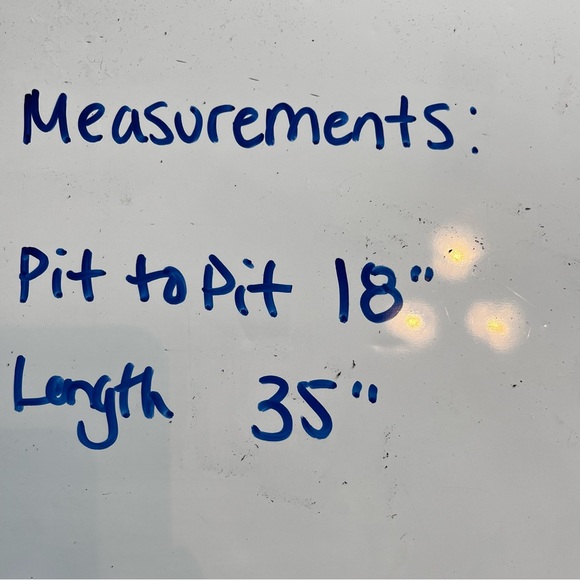 Measurements:
Pit to Pit 18"
Length 35"